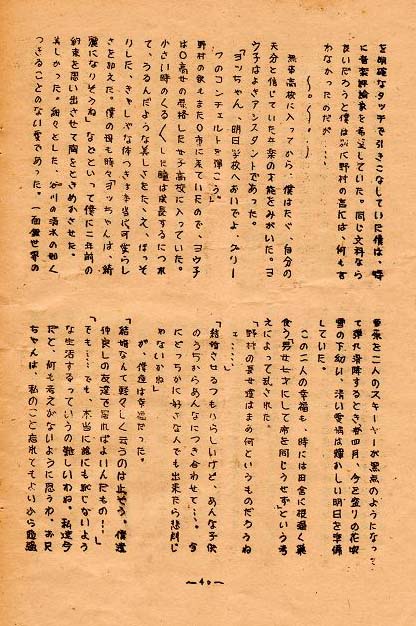 を明確なタッチで引きこなしていた僕は、時
に音楽評論家を希望していた。同じ文科なら
良いだろうと僕は別に野村の言には、何も言
わなかったのだが……
〜〜〜〜
無事高校に入ってから、僕はたゞ、自分の
天分と信じていた音楽の才能をみがいた。ヨ
ウ子はよきアシスタントであった。
「ヨッちゃん、明日学校へおいでよ、グリー
グのコンチェルトを弾こう。」
野村の家もまたO市に来ていたので、ヨウ子
はO高女の昇格した女子高校に入っていた。
小さい時のくるくるした瞳は成長するにつれ
て、うるんだような美しさをたゝえ、ほっそ
りした、きゃしゃな体つきは本当に可愛らし
さを加えた。僕の母も時々「ヨッちゃんは、綺
麗になりそうね」などといって僕に二年前の
約束を思い出させて胸をときめかさせた。
美しかった。綿々とした、谷川の清水の如く
つきることのない愛であった。一面銀世界の
東条を二人のスキーヤーが黒点のようになっ
て弾れ滑降するとき
雪の下、清い愛情は輝かしい明日を準備
していた。
この二人の幸福も、時には田舎に根強く巣
食う「男女七才にして席を同じうせず」という考
えによって乱された。
「野村の長女達はまあ何というものだろうね
え……」
「結婚させるつもりらしいけど、あんな子供
のうちからあんなにつき合わせて……今
にどっちかに好きな人でも出来たら悲劇じ
ゃないかね」
が、僕達は幸福だった。
「結婚なんて軽々しく云うのは止そう。僕達
仲良しの友達で居ればよいんだもの！」
「でも……でも、本当に誰にも恥じないよう
な生活するっていうの難しいわね。私達今
だと、何も考えがないように思うわ。お兄
ちゃんは、私のこと忘れてもよいから勉強
—40—